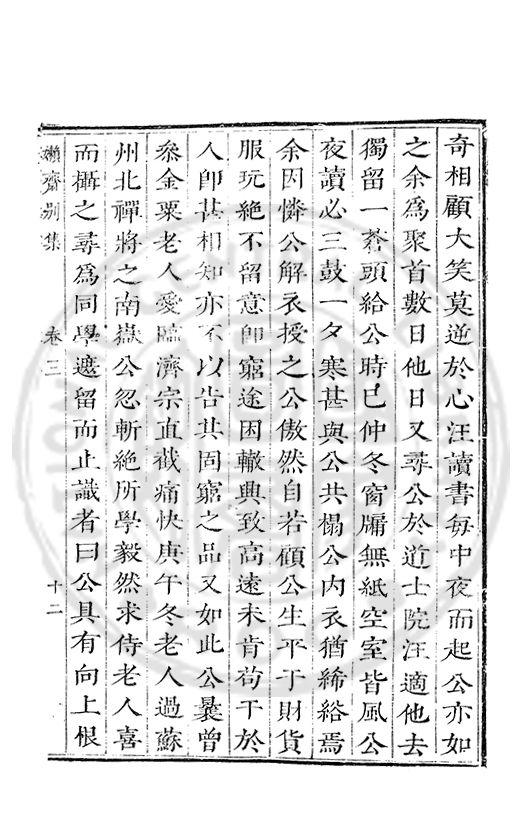 奇相顧大笑莫逆於心汪讀書每中夜而起公亦如
之余為聚首數日他日又尋公於道士院汪適他去
獨留一蒼頭給公時已仲冬窗牖無紙空室皆風公
夜讀必三鼓一夕寒甚與公共榻公內衣猶絺綌焉
余因憐公解衣授之公傲然自若顧公生平于財貨
服玩絕不留意卽窮途困轍興致高遠未肯苟干於
人卽甚相知亦不以告其固窮之品又如此公曩曾
叅金粟老人愛臨濟宗直截痛快庚午冬老人過蘇
州北禪將之南嶽公忽斬絕所學毅然求侍老人喜
而攝之尋為同學遮留而止識者曰公具有向上根
嬾齋别集
卷三
十二